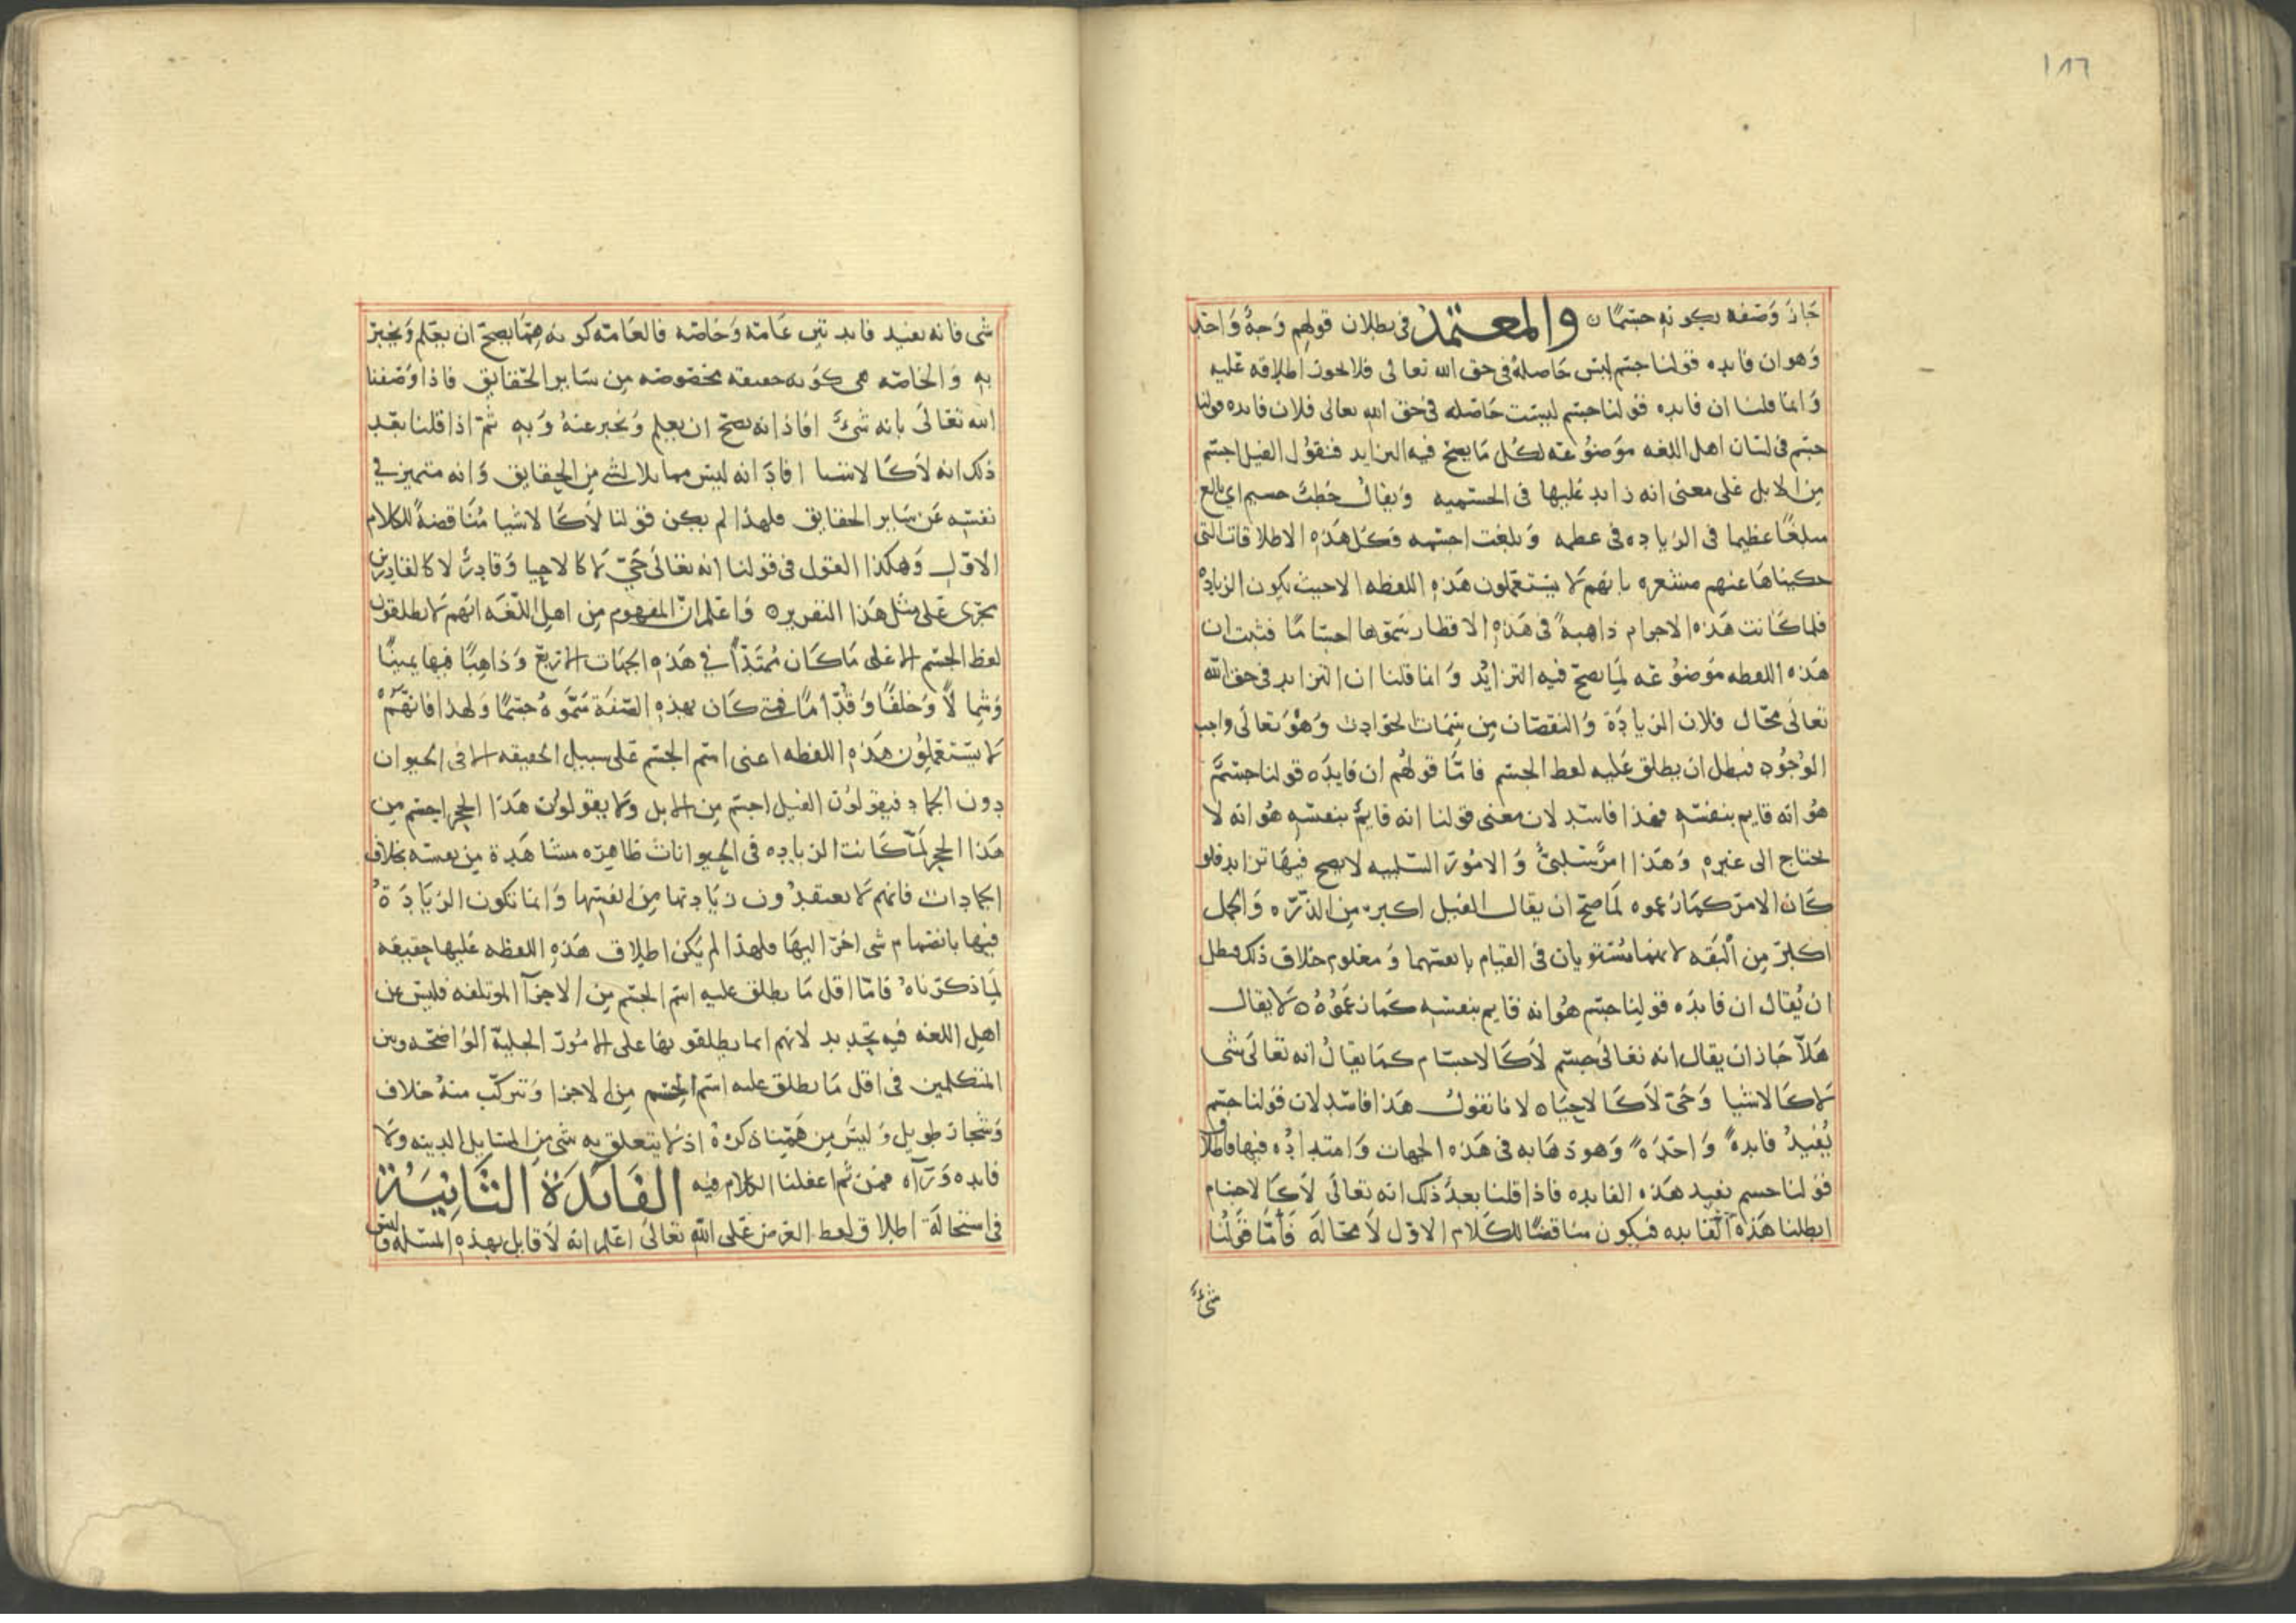 ١٨٦
جاز وصفه بكونه جسمًا ن والمعتمد في بطلان قولهم وجهٌ واحد
وهو ان فايده قولنا جسم ليس حاصلة في حق الله تعالى فلا يجوز اطلاقه عليه
وانما قلنا ان فايده قولنا جسم ليست حاصله في حق الله تعالى فلان فايده قولنا
جسم في لسان اهل اللغه موضوعة لكل ما يصح فيه التزايد فنقول الفيل اجسم
من الابل على معنى انه زايد عليها في الجسميه ويقال خطبٌ جسيم اي بالع
مبلغًا عظيما في الزياده في عظمه وبلغت اجسمه فكل هذه الاطلاقات التي
حكيناها عنهم مشعره بانهم لا يستعملون هذه اللفظه الا حيث يكون الزيادة
فلما كانت هذه الاجرام ذاهبةً في هذه الاقطار سموها اجسامًا فثبت ان
هذه اللفظه موضوعه لما يصح فيه التزايد وانما قلنا ان التزايد في حق الله
تعالى محال فلان الزيادة والنقصان من سمات الحوادث وهو تعالى واجب
الوجود فبطل ان يطلق عليه لفظ الجسم فامّا قولهم ان فايده قولنا جسمٌ
هو انه قايم بنفسه فهذا فاسد لان معنى قولنا انه قايمٌ بنفسه هو انه لا
يحتاج الى غيره وهذا امرٌ سلبيٌ والامور السلبيه لا يصح فيها تزايد فلو
كان الامر كما زعموه لما صح ان يقال الفيل اكبر من الذرّه والجمل
اكبر من البقه لانهما مستويان في القيام بانفسهما ومعلوم خلاف ذلك فبطل
ان يُقال ان فايده قولنا جسم هو انه قايم بنفسه كما زعموه ن لا يقال
هلّا جاز ان يقال انه تعالى جسم لا كالاجسام كما يقال انه تعالى شي
لا كالاشيا وحيّ لا كالاحياه لانا نقول هذا فاسد لان قولنا جسم
يُفيدُ فايدةً واحدهً وهو ذهابه في هذه الجهات وامتداده فيها
قولنا جسم يفيد هذه الفايده فاذا قلنا بعد ذلك انه تعالى لا كالاجسام
ابطلنا هذه الفايده فيكون مناقضًا للكلام الاول لا محالة فأمّا قولنا
شيءٌ
شي فانه يفيد فايدتين عامة وخاصه فالعامه كونه مما يصح ان يعلم ويخبر
به والخاصه هي كونه حقيقه مخصوصه من ساير الحقايق فاذا وصفنا
الله تعالى بانه شيءٌ افاد انه يصح ان يعلم ويخبر عنهُ وبه ثم اذا قلنا بعد
ذلك انه لا كالاشيا افاد انه ليس مماثلا لشي من الحقايق وانه متميز في
نفسه عن ساير الحقايق فلهذا لم يكن قولنا لا كالاشيا مُناقضةً للكلام
الاوّل وهكذا القول في قولنا انه تعالى حيّ لا كالاحيا وقادرٌ لا كالقادرين
يجرى على مثل هذا التقرير ن واعلم ان المفهوم من اهل اللغه انهم لا يطلقون
لفظ الجسم الا على ما كان مُمتدًا في هذه الجهات الاربع وذاهبًا فيها يمينًا
وشمالًا وخلفًا وقُدّامًا فمتى كان بهذه الصّفة سمّوهُ جسمًا ولهذا فانهم
لا يستعملون هذه اللفظه اعنى اسم الجسم على سبيل الحقيقه الا في الحيوان
دون الجماد فيقولون الفيل اجسم من الابل ولا يقولون هذا الحجر اجسم من
هذا الحجر لمّا كانت الزياده في الحيوانات ظاهره مشاهدة من نفسه بخلاف
الجمادات فانهم لا يعتقدون زيادتها من انفسها وانما تكون الزيادةُ
فيها بانضمام شي اخر اليها فلهذا لم يكن اطلاق هذه اللفظه عليها حقيقه
لما ذكرناه فامّا اقل ما يطلق عليه اسم الجسم من الاجزآ الموتلفه فليس عن
اهل اللغه فيه تحديد لانهم انما يطلقونها على الامور الجليّة الواضحه وبين
المتكلمين في اقل ما يطلق عليه اسم الجسم من الاجزا وتركّب منهُ خلاف
وشجار طويل وليس من همّنا ذكرهُ اذ لا يتعلق به شي من المسايل الدينه ولا
فايده ورآه فمن ثم اغفلنا الكلام فيه الفايدة الثانيةُ
في استحالة اطلاق لفظ العرض على الله تعالى اعلم انه لا قايل بهذه المسله